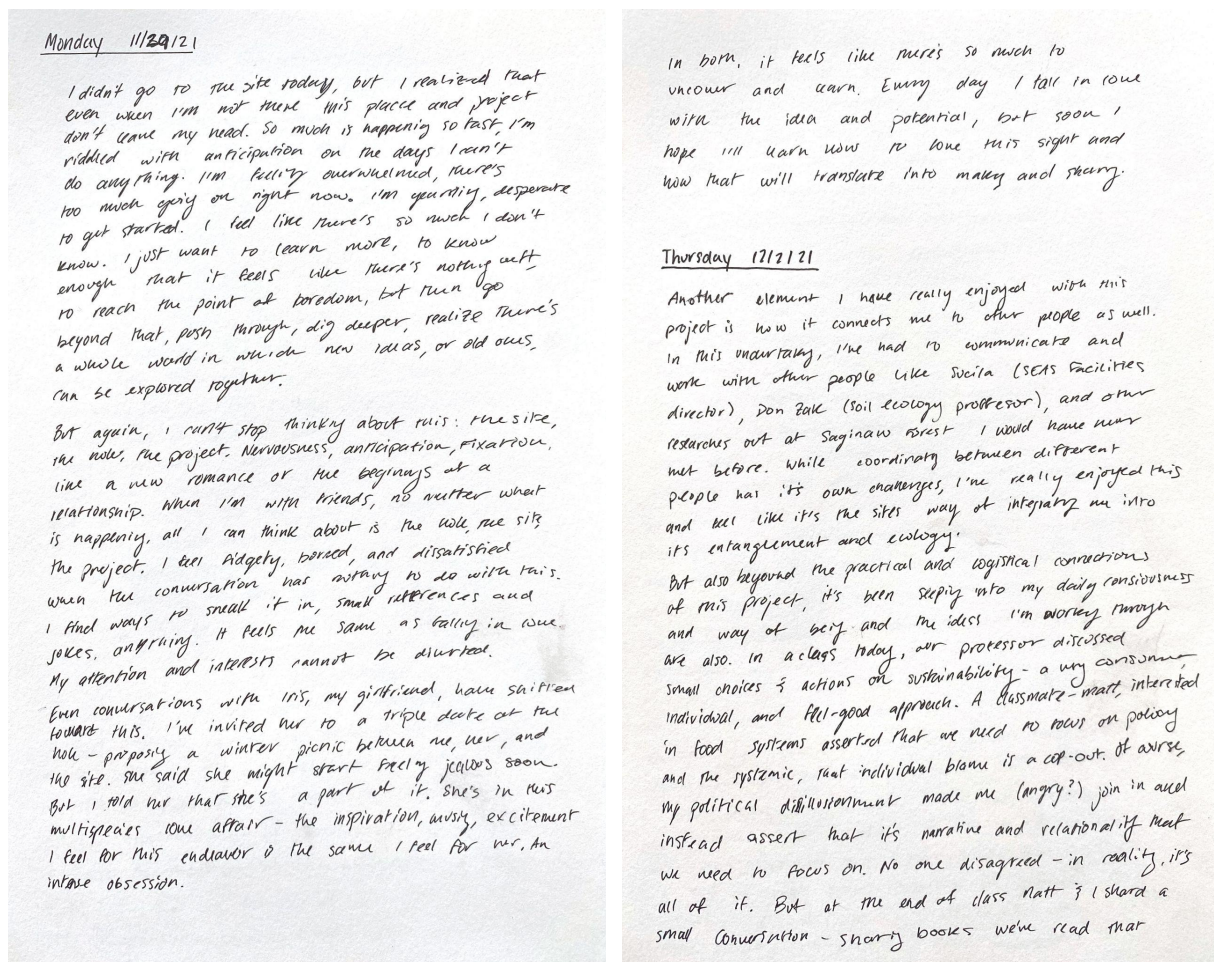 Monday 11/29/21
I didn't go to the site today, but I realized that
even when I'm not there this placce and project
don't leave my head. So much is happening so fast, I'm
riddled with anticipation on the days I can't
do anything. I'm feeling overwhelmed, there's
too much going on right now. I'm yearning, desperate
to get started. I feel like there's so much I don't
know. I just want to learn more, to know
enough that it feels like there's nothing left,
to reach the point of boredom, but then go
beyond that, push through, dig deeper, realize there's
a whole world in which new ideas, or old ones,
can be explored together.
But again, I can't stop thinking about this: the site,
the hole, the project. Nervousness, anticipation, fixation,
like a new romance or the beginings of a
relationship. When I'm with friends, no matter what
is happening, all I can think about is the hole, the site,
the project. I feel fidgety, bored, and dissatisfied
when the conversation has nothing to do with this.
I find ways to sneak it in, small references and
jokes, anything. It feels the same as falling in love.
My attention and interests cannot be diverted.
Even conversations with Iris, my girlfriend, have shifted
toward this. I've invited her to a triple date at the
hole – proposing a winter picnic between me, her, and
the site. She said she might start feeling jealous soon.
But I told her that she's a part of it. She's in this
multispecies love affair – the inspiration, excitement
I feel for this endeavor is the same I feel for her. An
intense obsession.
In both, it feels like there's so much to
uncover and learn. Every day I fall in love
with the idea and potential, but soon I
hope I'll learn how to love this sight and
how that will translate into making and sharing.
Thursday 12/2/21
Another element I have really enjoyed with this
project is how it connects me to other people as well.
In this undertaking, I've had to communicate and
work with other people like Sucila (SEAS Facilities
director), Don Zak (soil ecology proffesor), and other
researches out at Saginaw Forest I would have never
met before. While coordinating between different
people has it's own challenges, I've really enjoyed this
and feel like it's the sites way of integrating me into
its entanglement and ecology.
But also beyound the practical and logistical connections
of this project, it's been seeping into my daily consiousness
and way of being and the ideas I'm working through
are also. In a class today, our professor discussed
small choices & actions on sustainability – a very consumer,
individual, and feel-good approach. A classmate – matt, interested
in food systems asserted that we need to focus on policy
and the systemic, that individual blame is a cop-out. Of course,
my political disillusionment made me (angry?) join in and
instead assert that it's narrative and relationality that
we need to focus on. No one disagreed – in reality, it's
all of it. But at the end of class Matt & I shared a
small conversation – sharing books we've read that